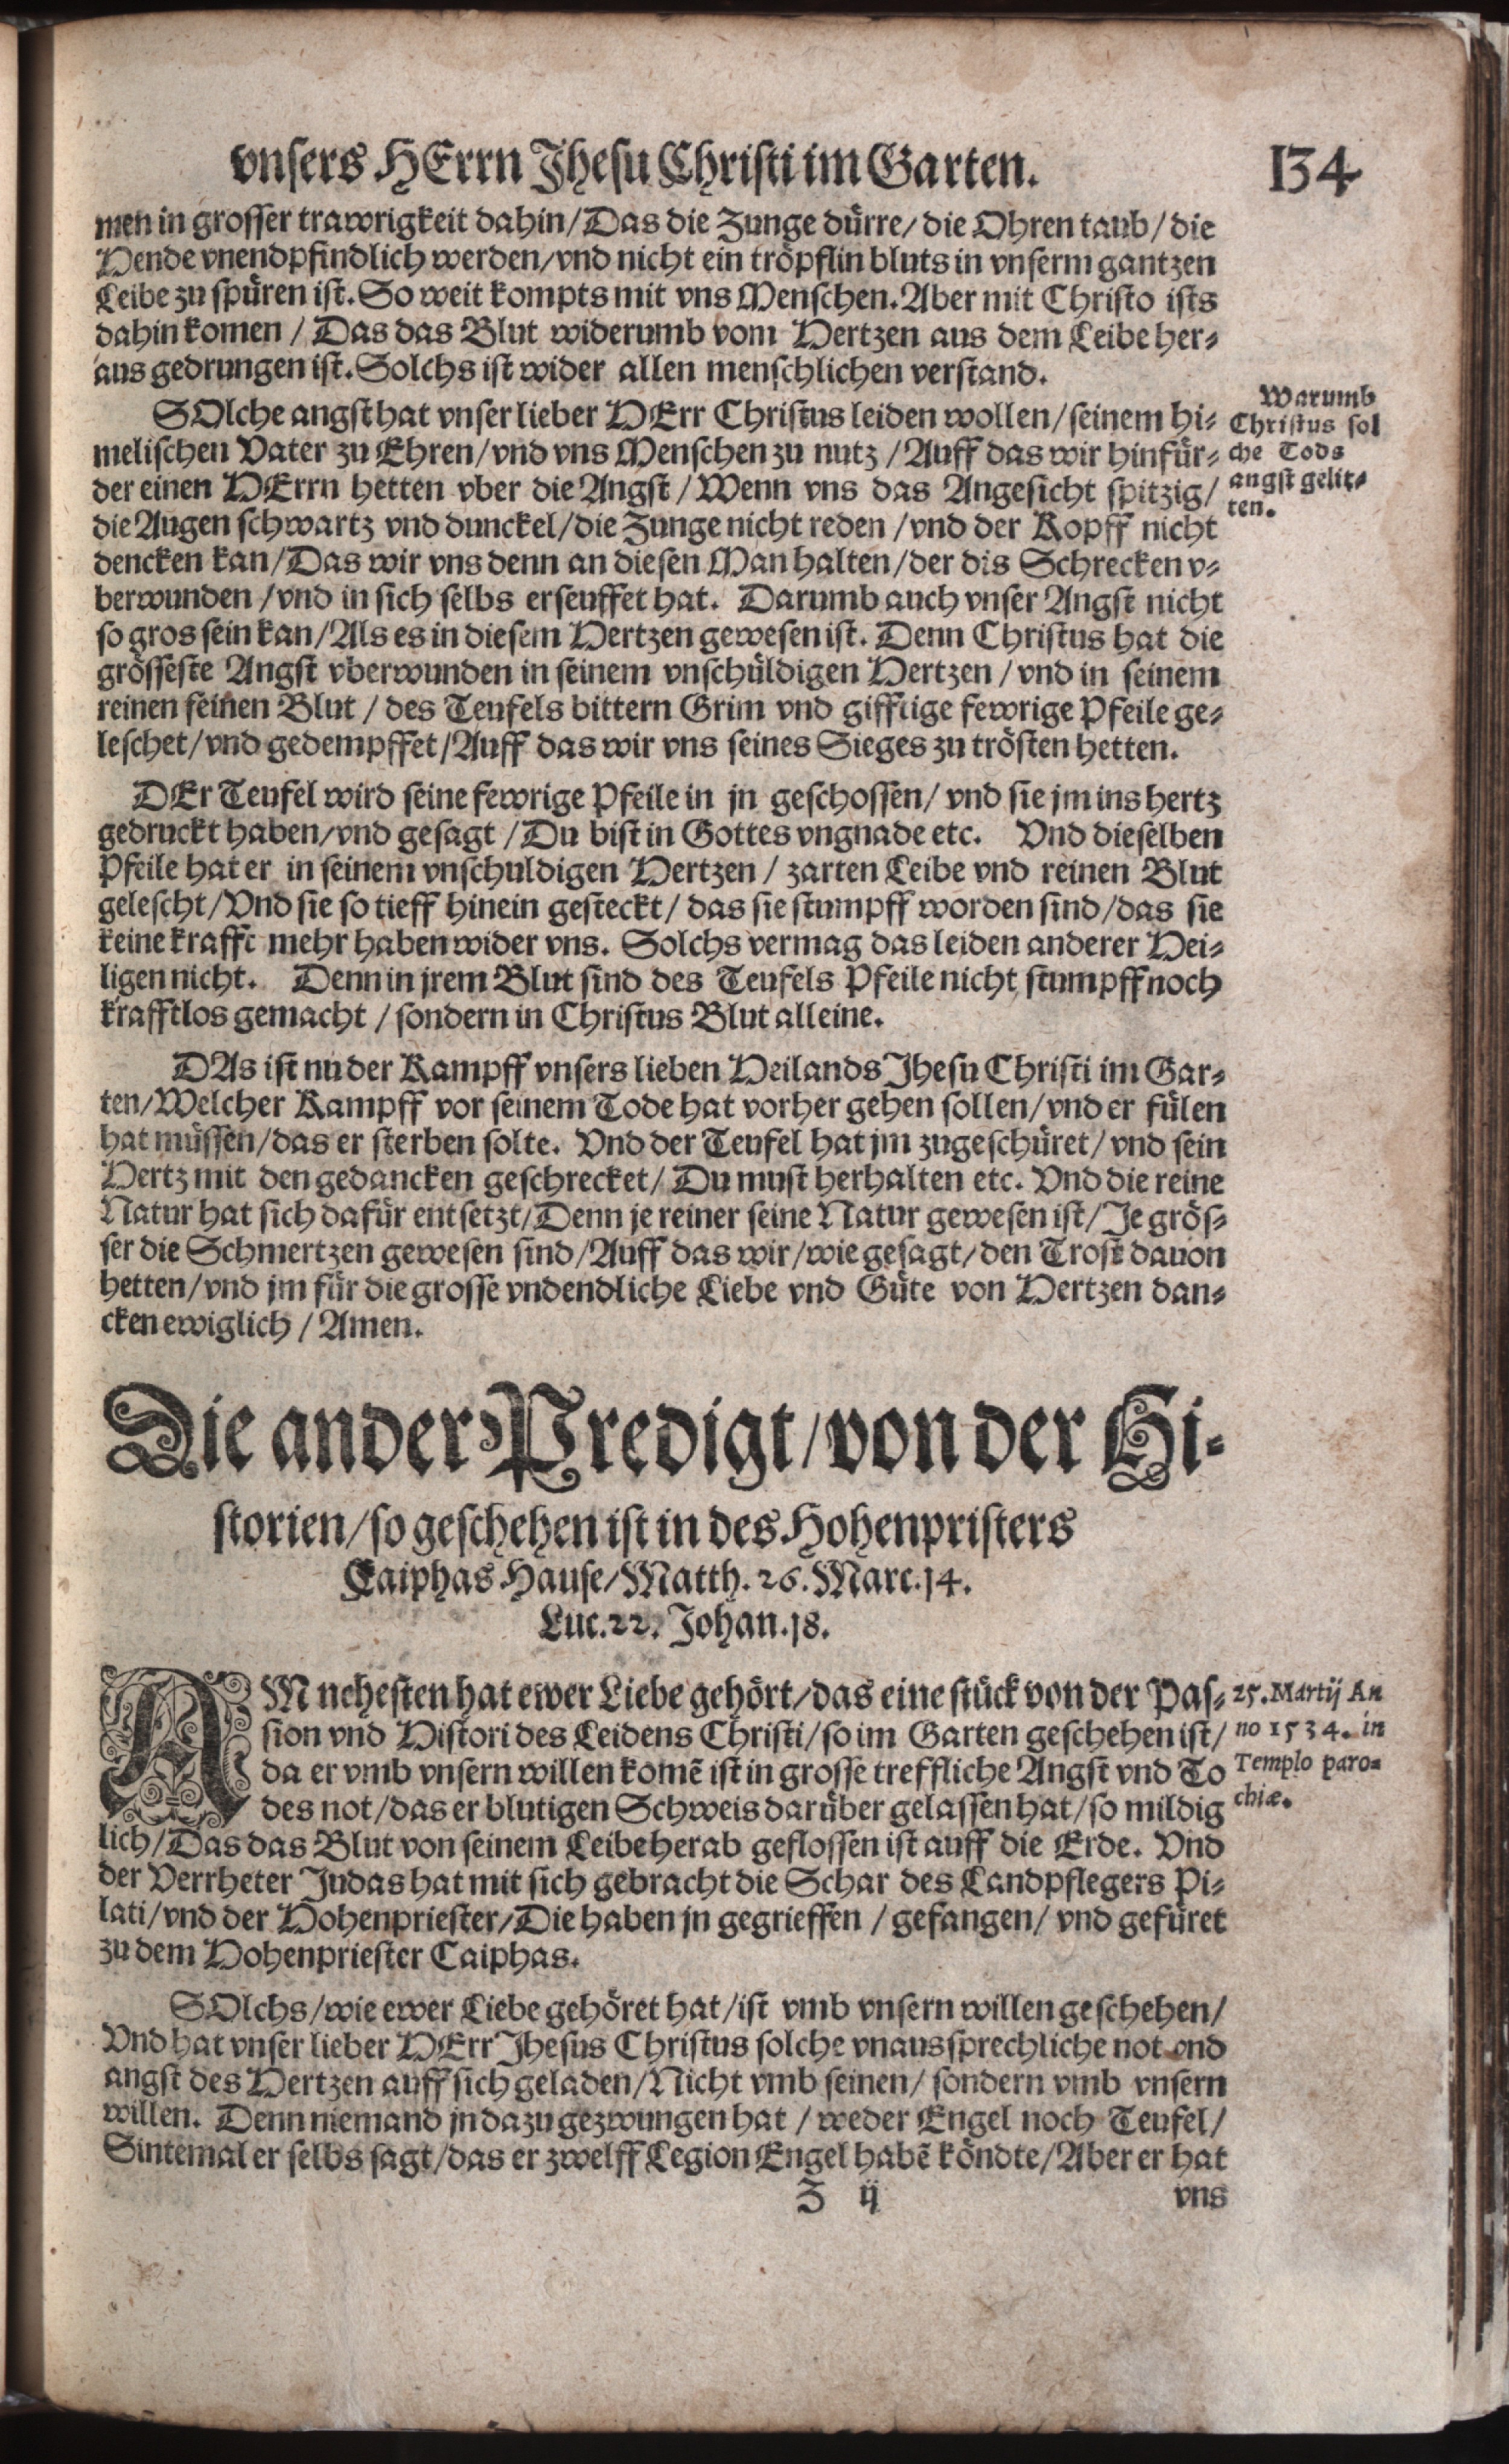 vnsers HErrn Jhesu Christi im Garten. 134
men in grosser trawrigkeit dahin/Das die Zunge dürre/die Ohren taub/die
Hende vnendpfindlich werden/vnd nicht ein tröpflin bluts in vnserm gantzen
Leibe zu spüren ist. So weit kompts mit vns Menschen. Aber mit Christo ists
dahin komen / Das das Blut widerumb vom Hertzen aus dem Leibe her-
aus gedrungen ist. Solchs ist wider allen menschlichen verstand.
SOlche angst hat vnser lieber HErr Christus leiden wollen/seinem hi-
melischen Vater zu Ehren/vnd vns Menschen zu nutz/Auff das wir hinfür-
der einen HErrn hetten vber die Angst/Wenn vns das Angesicht spitzig/
die Augen schwartz vnd dunckel/die Zunge nicht reden/vnd der Kopff nicht
dencken kan/Das wir vns denn an diesen Man halten/der dis Schrecken v-
berwunden/vnd in sich selbs erseuffet hat. Darumb auch vnser Angst nicht
so gros sein kan/Als es in diesem Hertzen gewesen ist. Denn Christus hat die
grösseste Angst vberwunden in seinem vnschüldigen Hertzen/vnd in seinem
reinen feinen Blut/des Teufels bittern Grim vnd gifftige fewrige Pfeile ge-
leschet/vnd gedempffet/Auff das wir vns seines Sieges zu trösten hetten.
Warumb
Christus sol
che Tods
angst gelit-
ten.
DEr Teufel wird seine fewrige Pfeile in jn geschossen/vnd sie jm ins hertz
gedruckt haben/vnd gesagt/Du bist in Gottes vngnade etc. Vnd dieselben
Pfeile hat er in seinem vnschuldigen Hertzen/zarten Leibe vnd reinen Blut
gelescht/Vnd sie so tieff hinein gesteckt/das sie stumpff worden sind/das sie
keine krafft mehr haben wider vns. Solchs vermag das leiden anderer Hei-
ligen nicht. Denn in jrem Blut sind des Teufels Pfeile nicht stumpff noch
krafftlos gemacht/sondern in Christus Blut alleine.
DAs ist nu der Kampff vnsers lieben Heilands Jhesu Christi im Gar-
ten/Welcher Kampff vor seinem Tode hat vorher gehen sollen/vnd er fülen
hat müssen/das er sterben solte. Vnd der Teufel hat jm zugeschüret/vnd sein
Hertz mit den gedancken geschrecket/Du must herhalten etc. Vnd die reine
Natur hat sich dafür entsetzt/Denn je reiner seine Natur gewesen ist/Je grös-
ser die Schmertzen gewesen sind/Auff das wir/wie gesagt/den Trost dauon
hetten/vnd jm für die grosse vndendliche Liebe vnd Güte von Hertzen dan-
cken ewiglich/Amen.
Die ander Predigt/von der Hi-
storien/so geschehen ist in des Hohenpristers
Caiphas Hause/Matth. 26. Marc. 14.
Luc. 22. Johan. 18.
AM nehesten hat ewer Liebe gehört/das eine stück von der Pas-
sion vnd Histori des Leidens Christi/so im Garten geschehen ist/
da er vmb vnsern willen komē ist in grosse treffliche Angst vnd To
des not/das er blutigen Schweis darüber gelassen hat/so mildig
lich/Das das Blut von seinem Leibe herab geflossen ist auff die Erde. Vnd
der Verrheter Judas hat mit sich gebracht die Schar des Landpflegers Pi-
lati/vnd der Hohenpriester/Die haben jn gegrieffen/gefangen/vnd gefüret
zu dem Hohenpriester Caiphas.
25. Martij An
no 1534. in
Templo paro-
chiæ.
SOlchs/wie ewer Liebe gehöret hat/ist vmb vnsern willen geschehen/
Vnd hat vnser lieber HErr Jhesus Christus solche vnaussprechliche not vnd
angst des Hertzen auff sich geladen/Nicht vmb seinen/sondern vmb vnsern
willen. Denn niemand jn dazu gezwungen hat/weder Engel noch Teufel/
Sintemal er selbs sagt/das er zwelff Legion Engel habē köndte/Aber er hat
Z ij vns